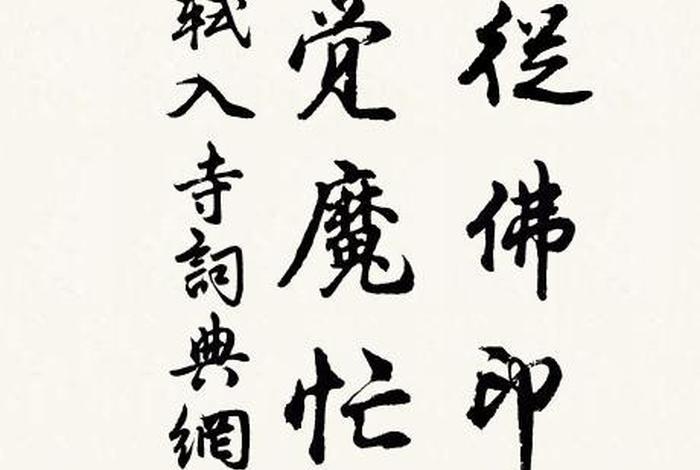 從佛印
覚魔忙
軾入寺詞典網